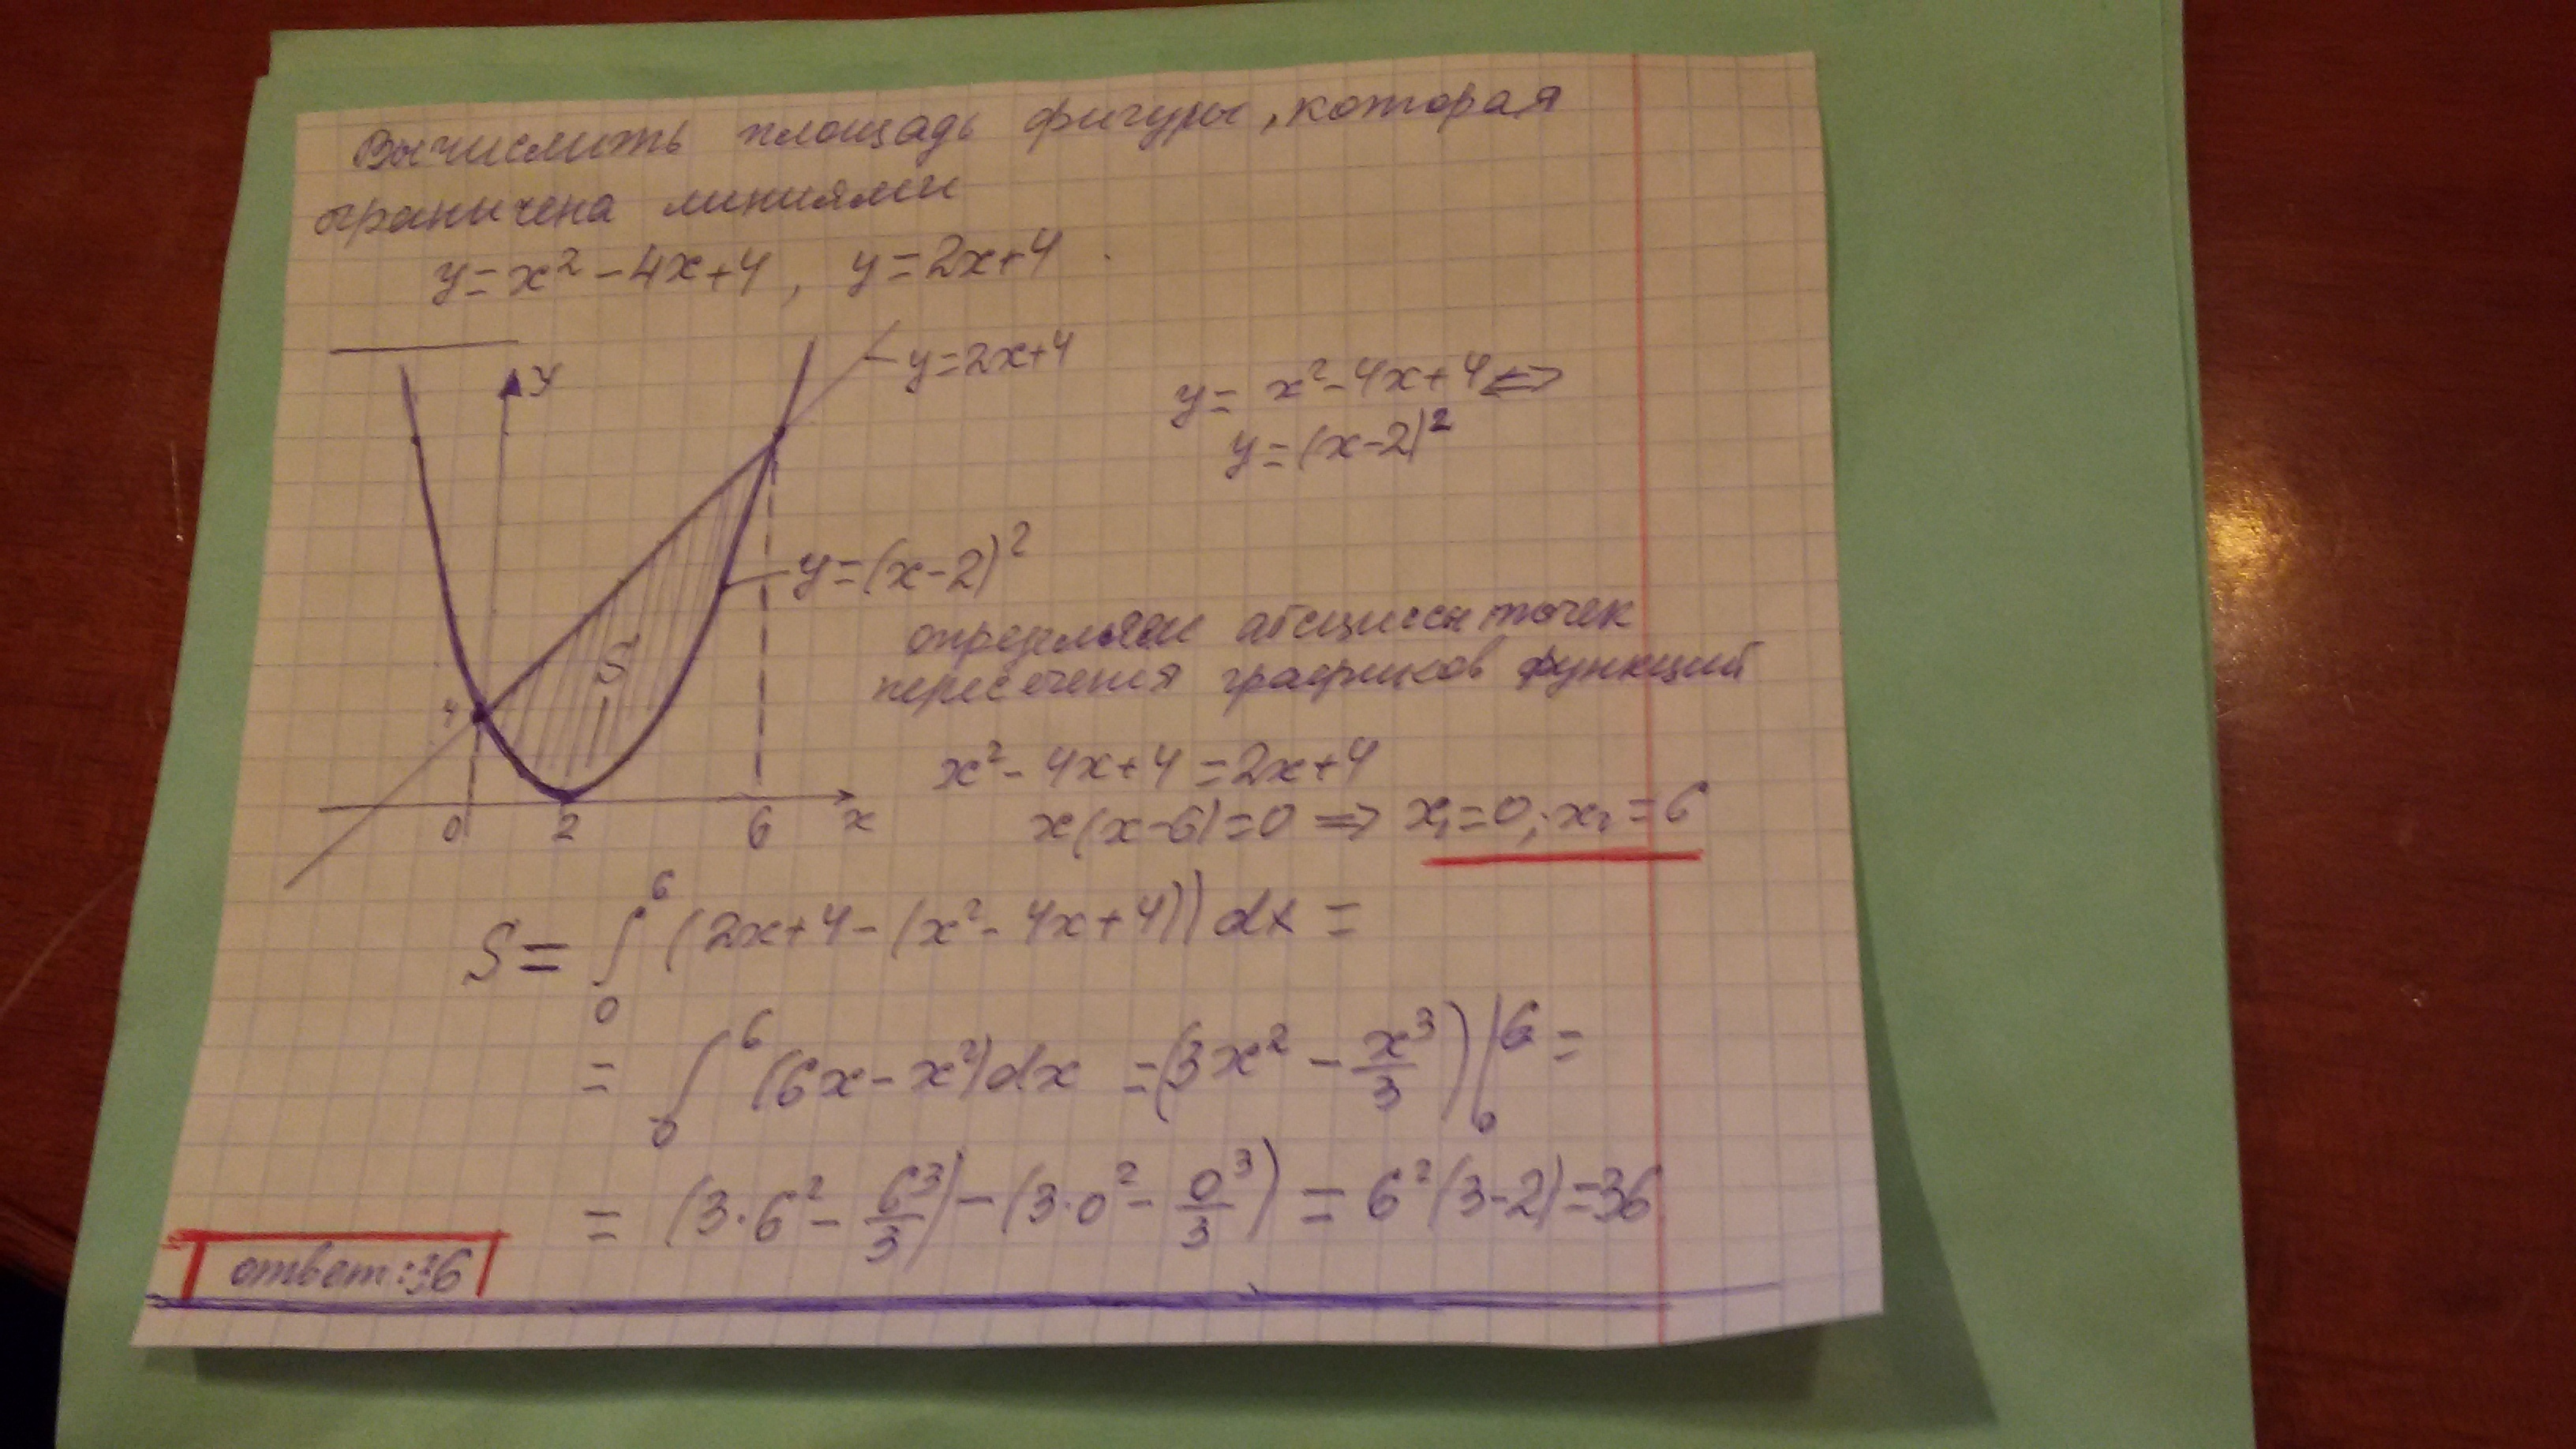 Вычислить площадь фигуры, которая
ограничена линиями
y = x² - 4x + 4, y = 2x + 4.
y
y = 2x + 4
y = x² - 4x + 4 <=>
y = (x - 2)²
y = (x - 2)²
S
определяем абсциссы точек
пересечения графиков функций
4
x² - 4x + 4 = 2x + 4
x(x - 6) = 0 => x₁ = 0; x₂ = 6
0 2 6 x
S = ∫₀⁶ (2x + 4 - (x² - 4x + 4)) dx =
= ∫₀⁶ (6x - x²) dx = (3x² - x³/3) |₀⁶ =
= (3·6² - 6³/3) - (3·0² - 0³/3) = 6²(3 - 2) = 36
ответ: 36